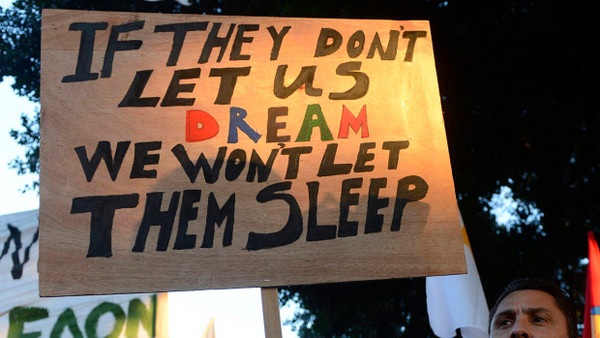 IF THEY DON'T
LET US
DREAM
WE WON'T LET
THEM SLEEP
ΕΔΟΝ